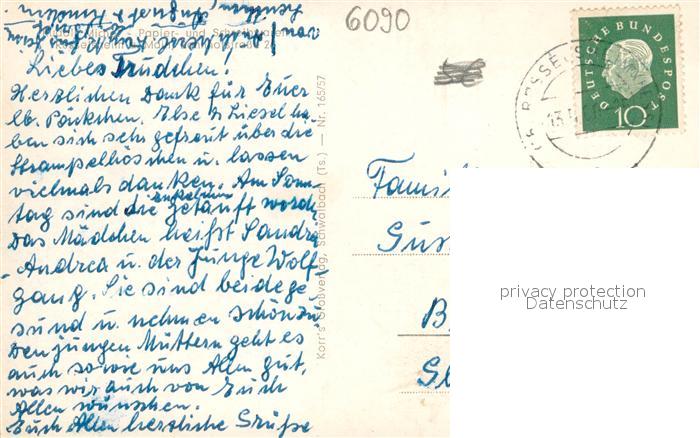 6090
Liebes Trudchen.
Herzlichen Dank für Euer
lb. Päckchen. Else u. Liesel ha
ben sich sehr gefreut über die
Strampelhöschen u. lassen
vielmals danken. Am Sonn
tag sind die Enkelinen getauft word
Das Mädchen heißt Sandra
Andrea u. der Junge Wolf-
gang. Sie sind beide ge
sund u. nehmen schön zu
Den jungen Müttern geht es
auch sowie uns Allen gut,
was wir auch von Euch
Allen wünschen.
Euch Allen herzliche Grüße
Korr's Großverlag, Schwalbach (Ts.) — Nr. 165/57
DEUTSCHE BUNDESPOST
10
Famil
Gus
B
privacy protection
Datenschutz